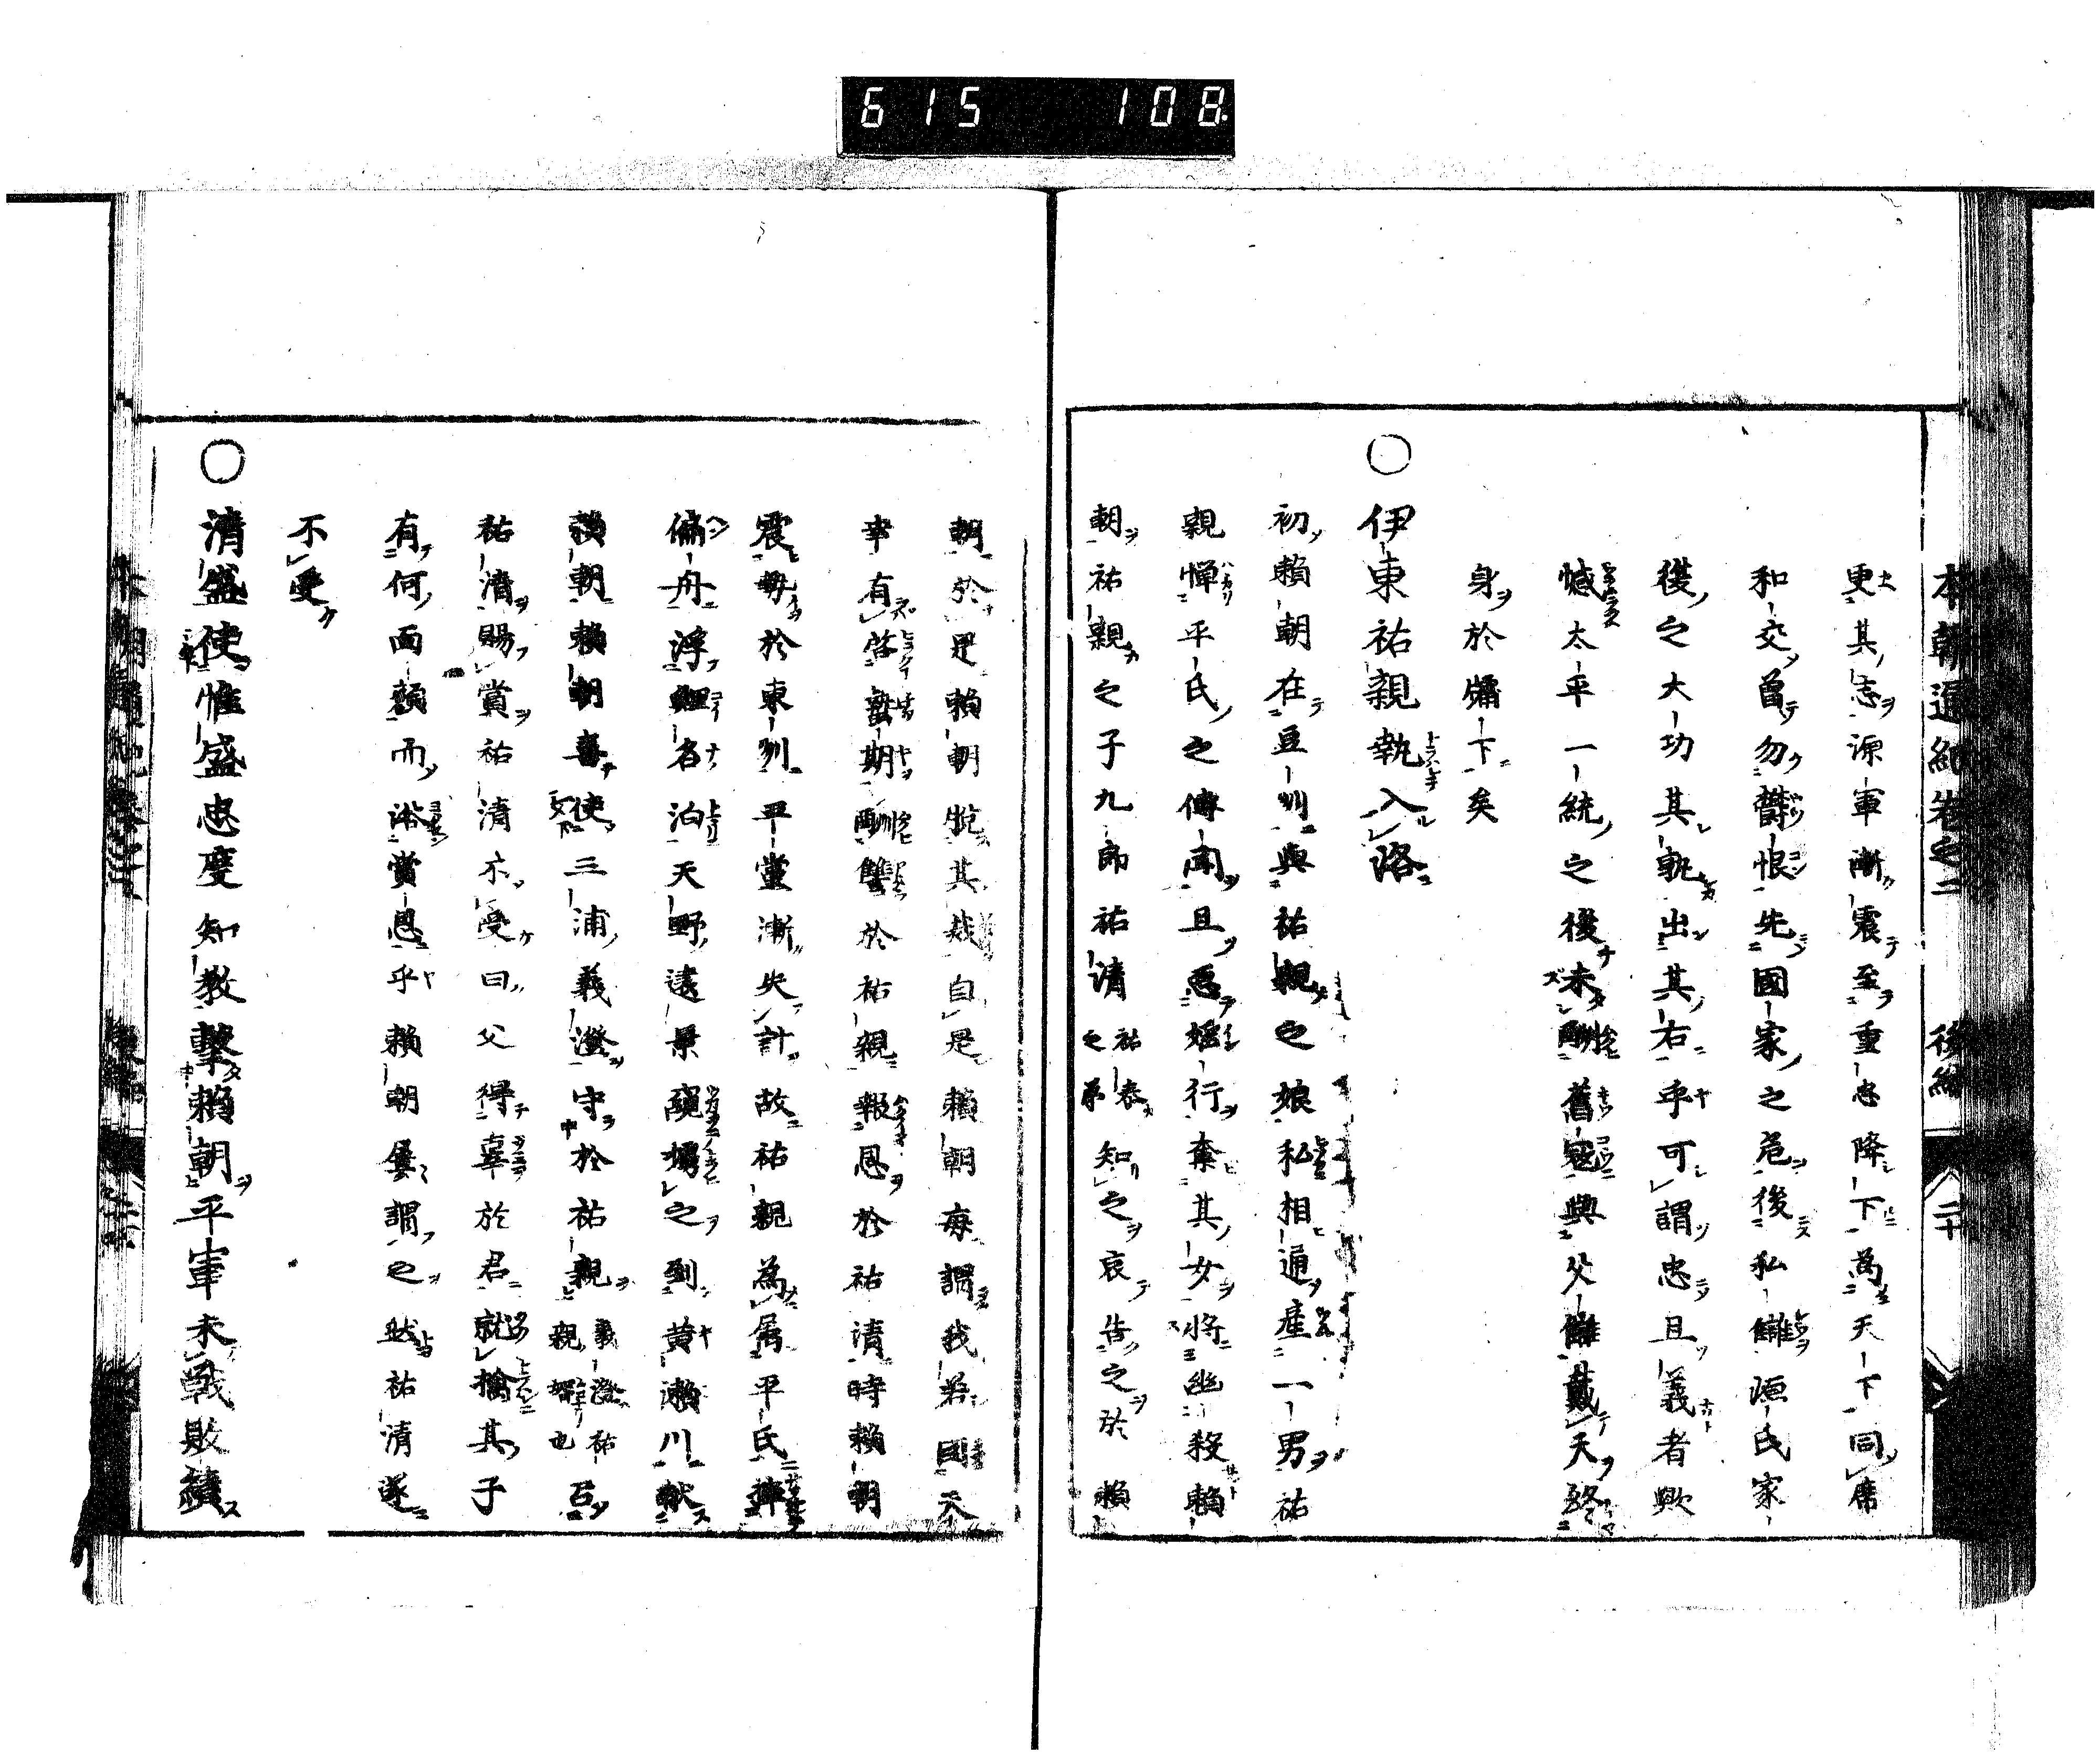 615 108
本朝通紀卷之二 後編 二十
更其志源軍漸震至重忠降下為天下同席
和交曾勿欝恨先國家之危後私讎源氏家
從之大功其孰出其右乎可謂忠且義者歟
憾太平一統之後未酬舊寇與父讎戴天終
身於牖下矣
〇伊東祐親執入洛
初頼朝在豆州與祐親之娘私相通産一男祐
親憚平氏之傳聞且惡婬行棄其女將幽殺頼
朝祐親之子九郎祐清祐泰之弟知之哀告之於頼
朝於是頼朝脱其烖自是頼朝毎謂我若囯不
幸有啓蟄期酬讐於祐親報恩於祐清時頼朝
震毎於東州平黨漸失計故祐親為属平氏
偏舟浮鯉名泊天野遠景窺搦之到黄瀬川献
頼朝頼朝喜使三浦義澄守於祐親義澄祐親壻也召
祐清賜賞祐清不受曰父得辜於君就擒其子
有何面顔而浴賞恩乎頼朝屢謂之然祐清遂
不受
〇清盛使惟盛忠度知教擊頼朝平軍未戰敗績